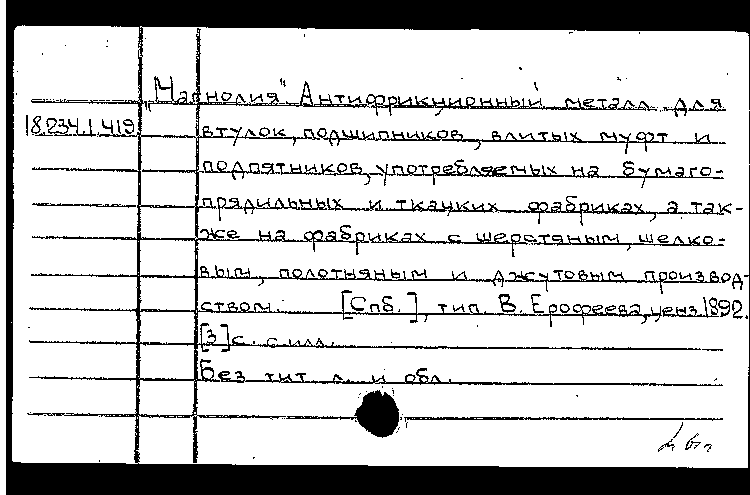 „Магнолия". Антифрикционный металл для
18.234.1.419
втулок, подшипников, влитых муфт и
подпятников, употребляемых на бумаго-
прядильных и ткацких фабриках, а так-
же на фабриках с шерстяным, шелко-
вым, полотняным и джутовым производ-
ством. [Спб.], тип. В. Ерофеева, ценз. 1892.
[3] с. с илл.
Без тит. л. и обл.